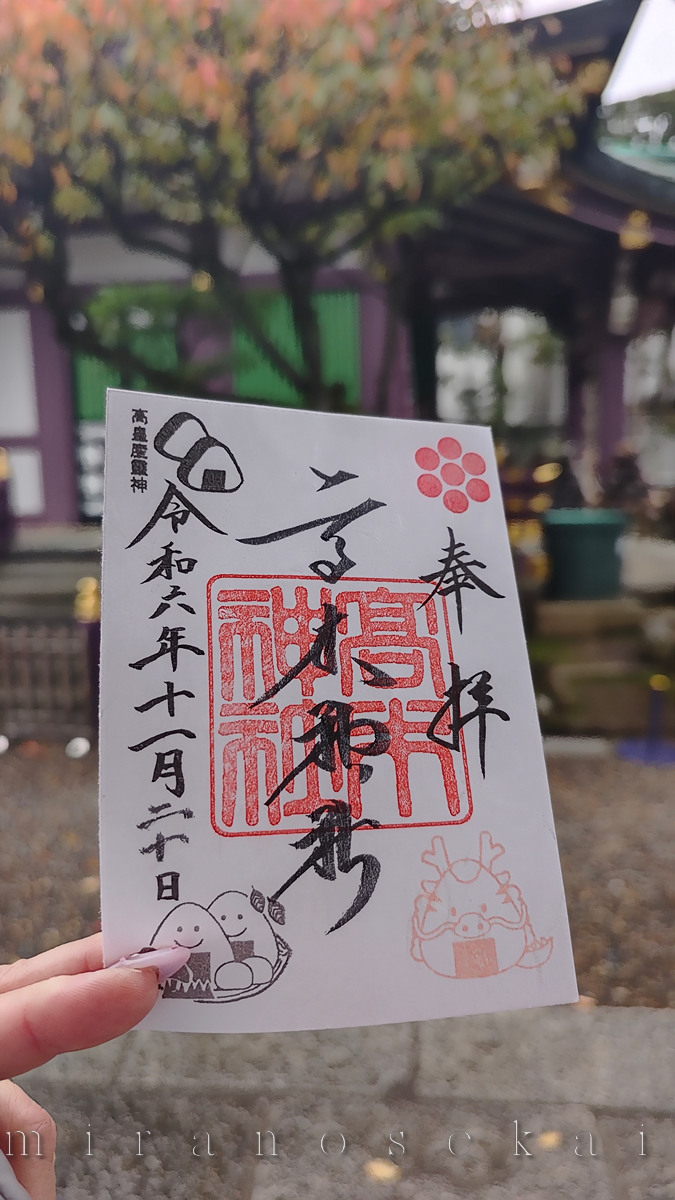 奉拝
高木神社
高木
神社
令和六年十一月二十日
高皇産霊神
miranosekai